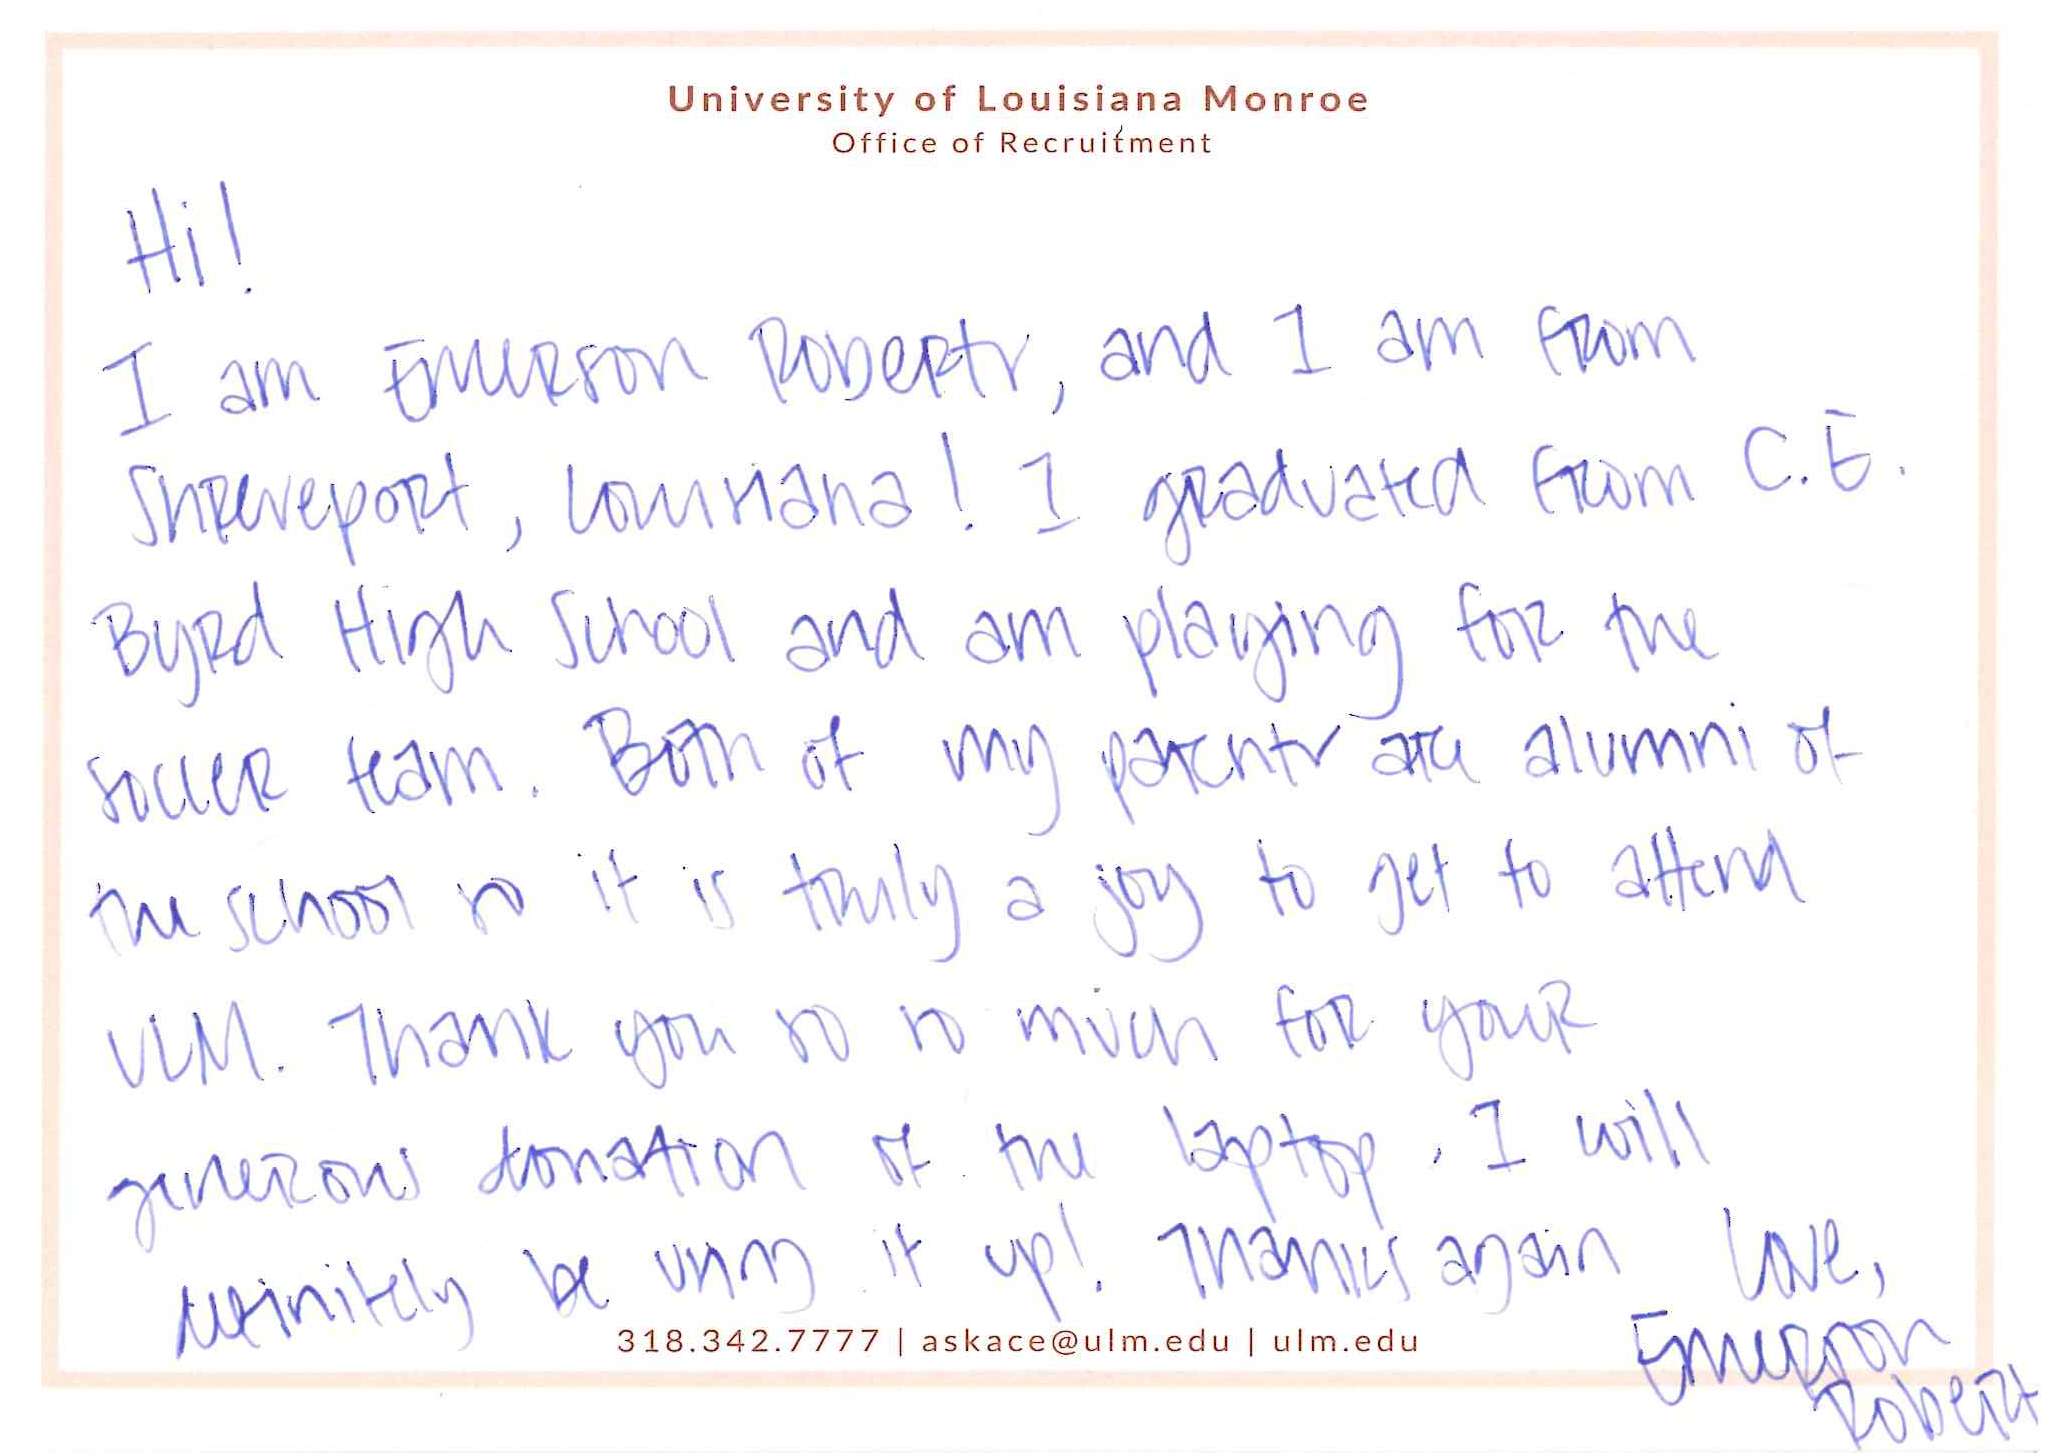 University of Louisiana Monroe
Office of Recruitment
Hi!
I am Emerson Roberts, and I am from
Shreveport, Louisiana! I graduated from C.E.
Byrd High School and am playing for the
soccer team. Both of my parents are alumni of
the school so it is truly a joy to get to attend
ULM. Thank you so so much for your
generous donation of the laptop. I will
definitely be using it up! Thanks again Love,
318.342.7777 | askace@ulm.edu | ulm.edu
Emerson
Robert